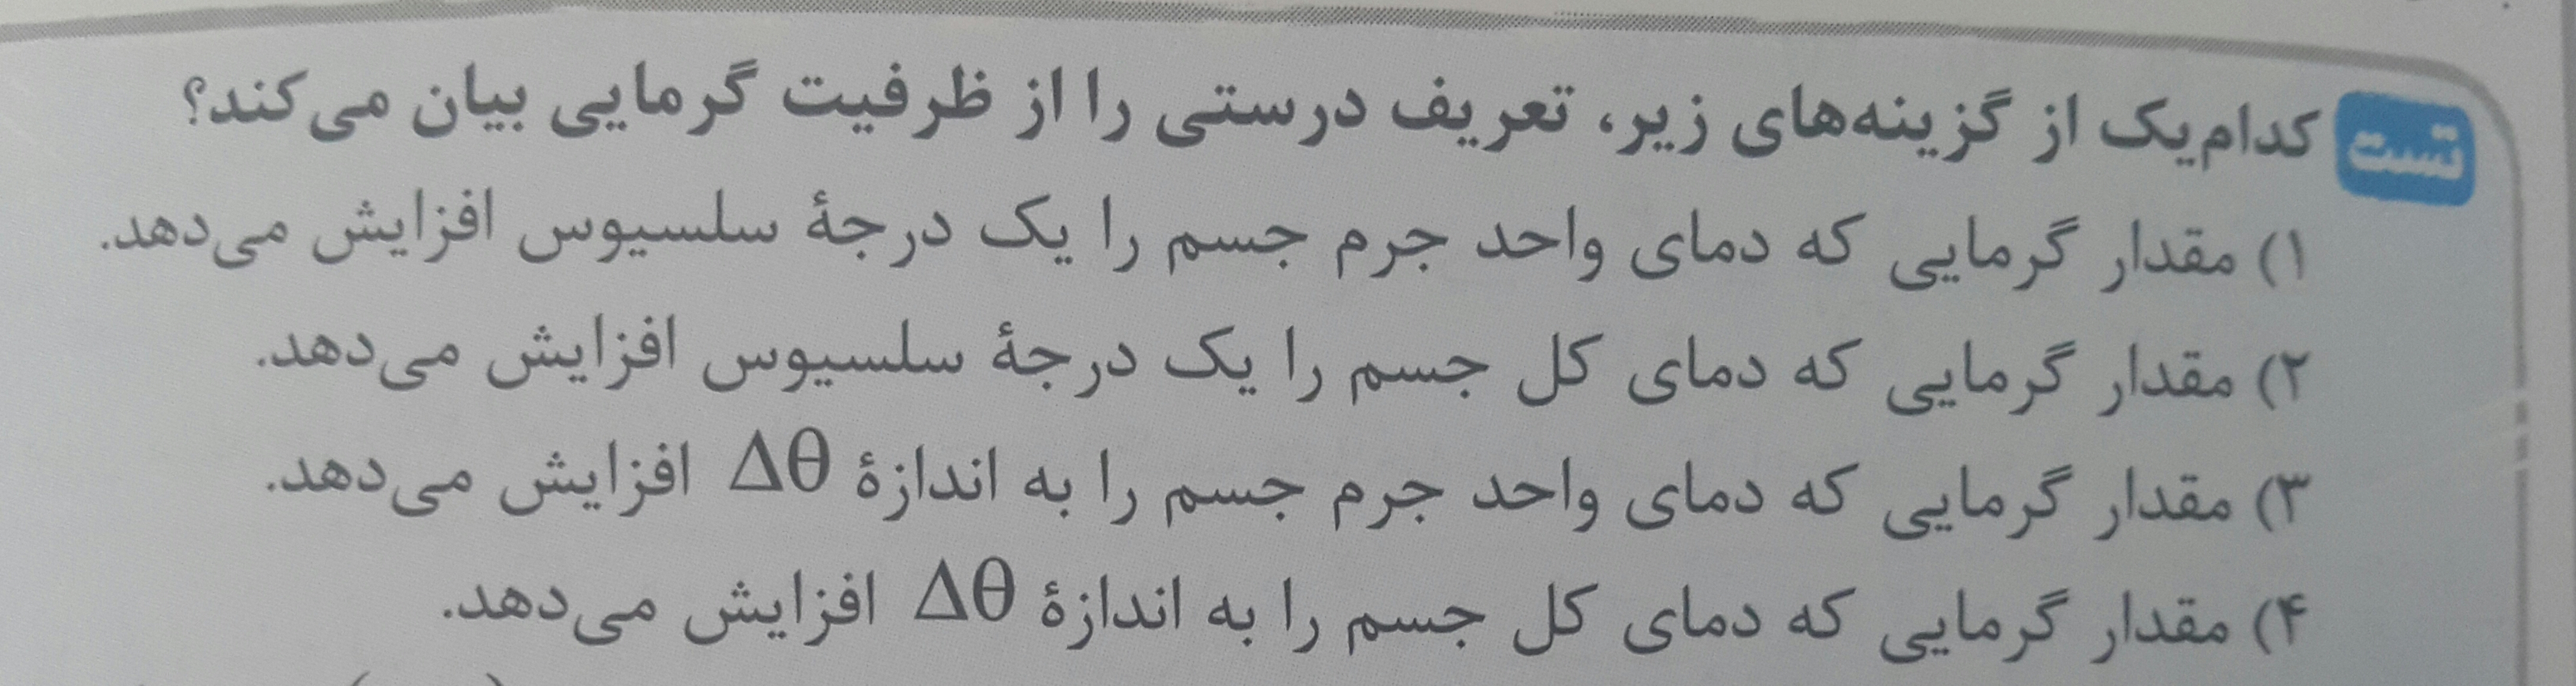 تست کدام‌یک از گزینه‌های زیر، تعریف درستی را از ظرفیت گرمایی بیان می‌کند؟
۱) مقدار گرمایی که دمای واحد جرم جسم را یک درجهٔ سلسیوس افزایش می‌دهد.
۲) مقدار گرمایی که دمای کل جسم را یک درجهٔ سلسیوس افزایش می‌دهد.
۳) مقدار گرمایی که دمای واحد جرم جسم را به اندازهٔ Δθ افزایش می‌دهد.
۴) مقدار گرمایی که دمای کل جسم را به اندازهٔ Δθ افزایش می‌دهد.